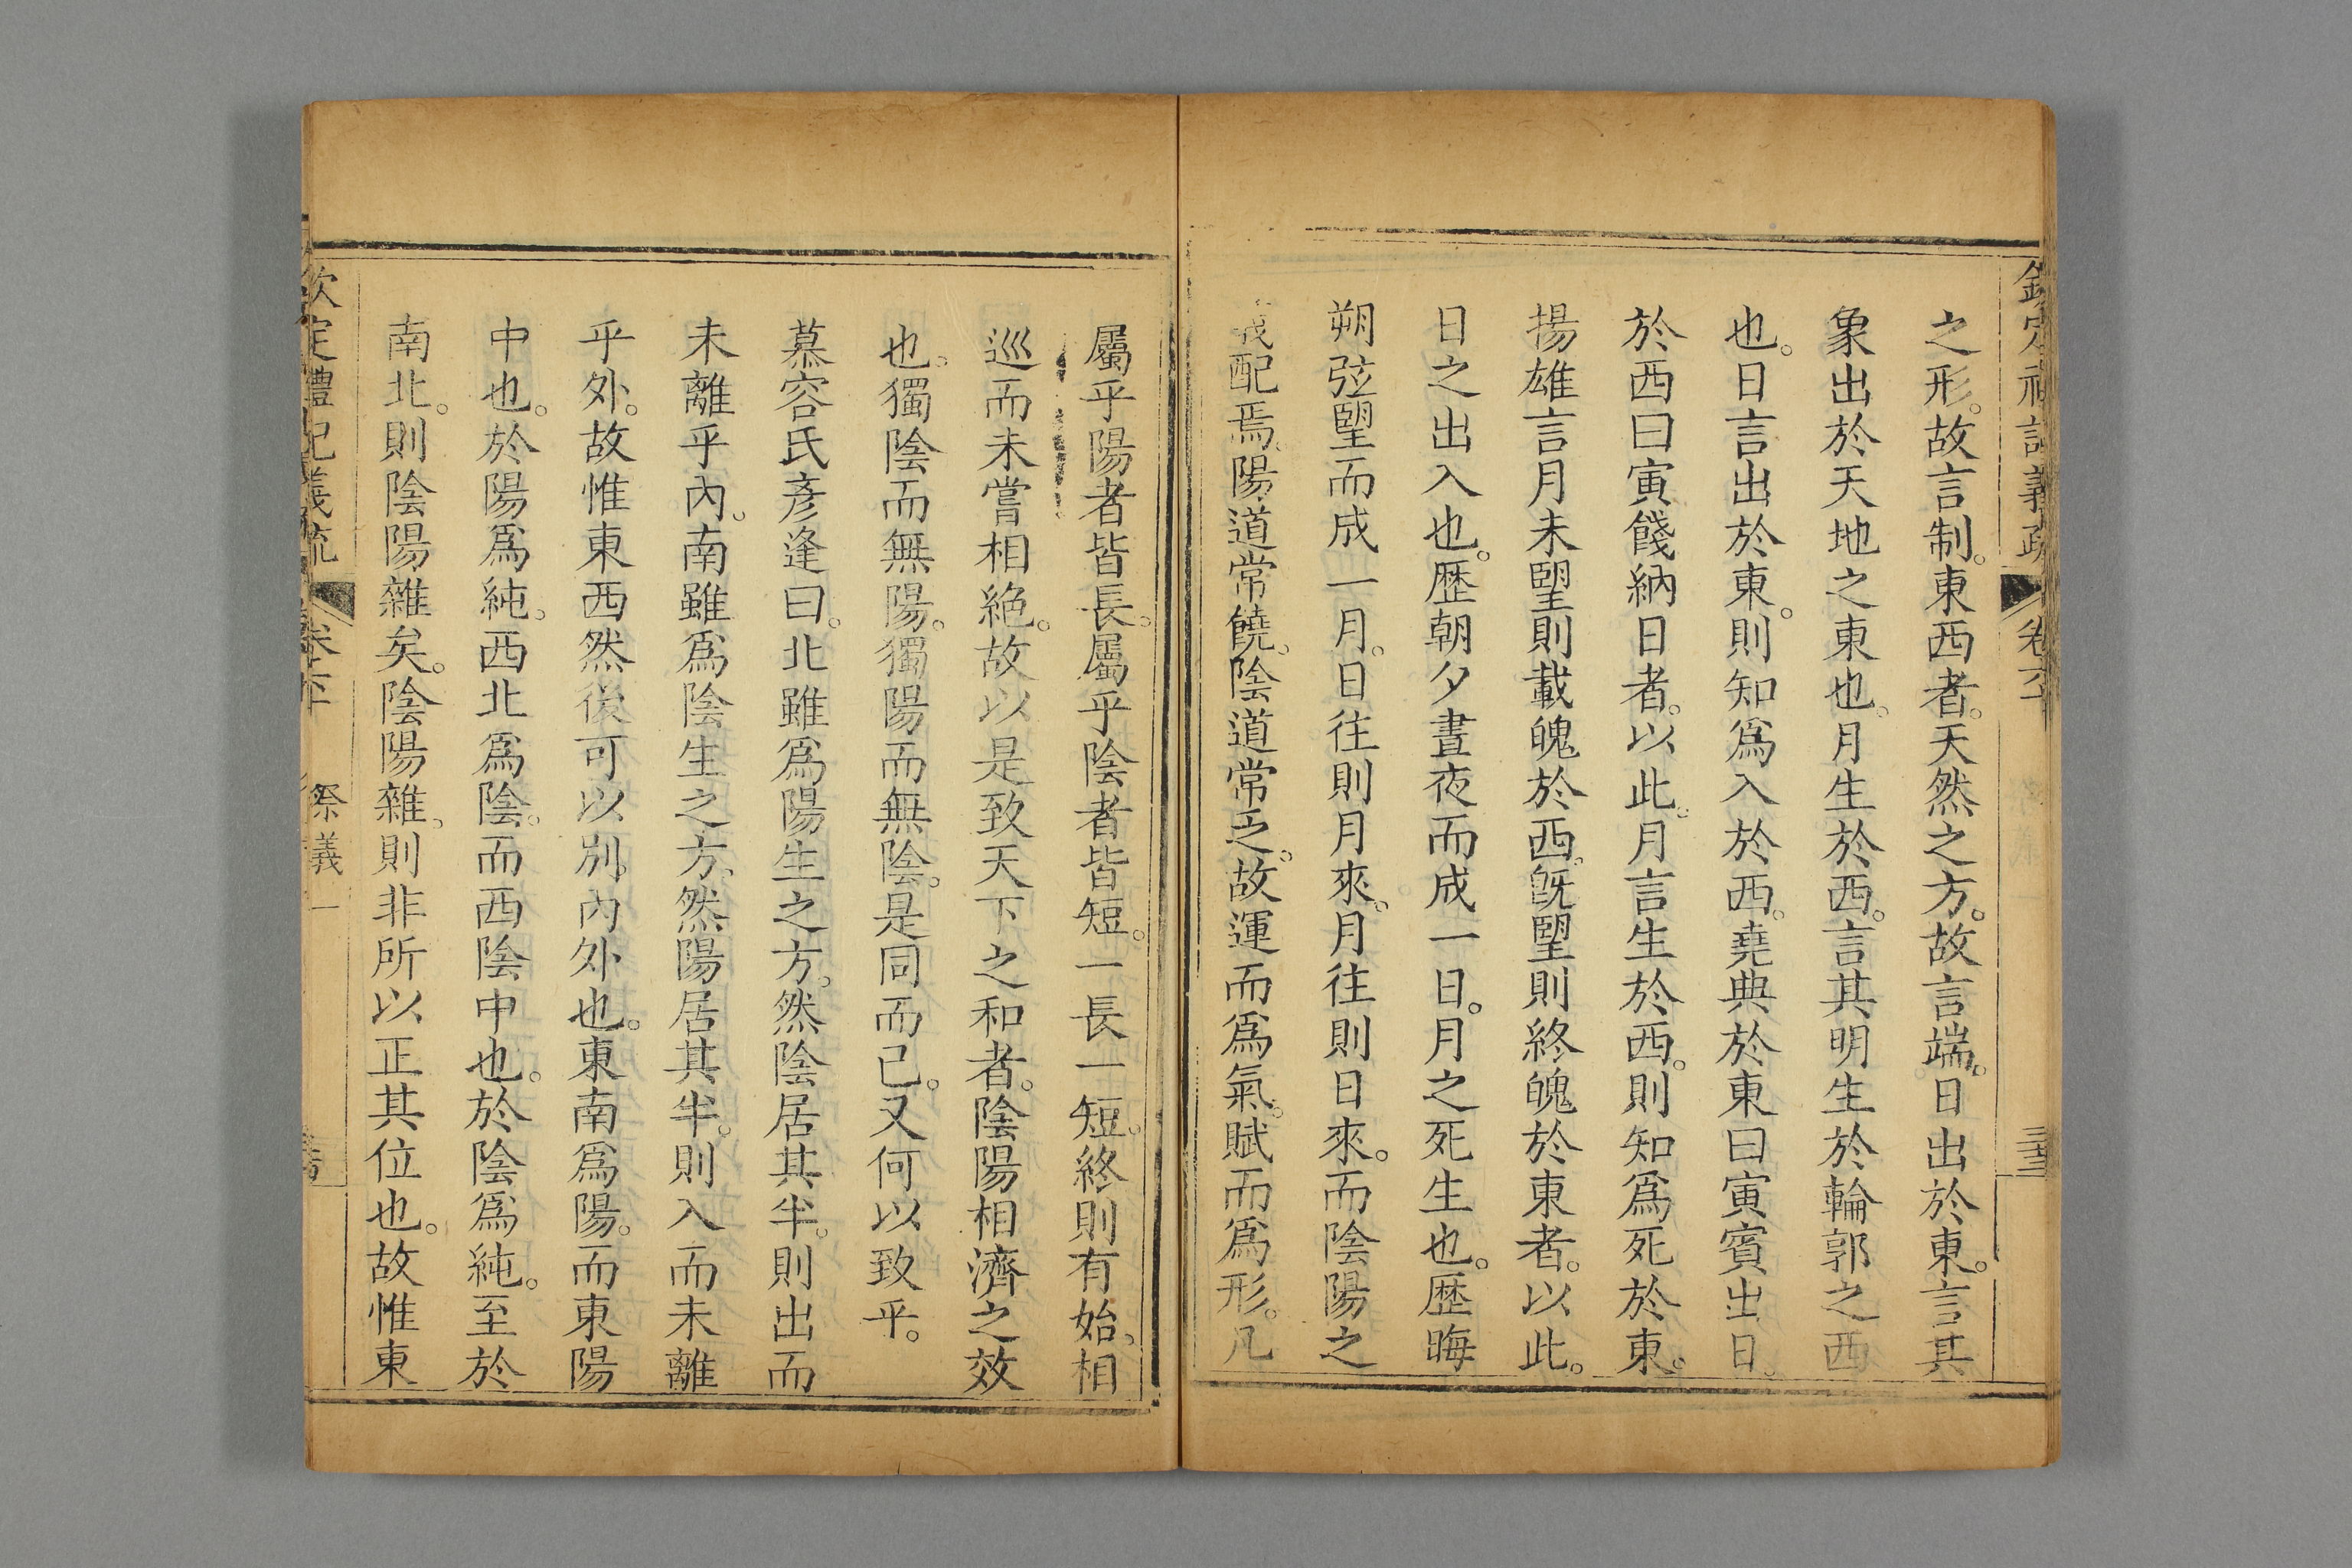 之形。故言制。東西者。天然之方。故言端。日出於東。言其
象出於天地之東也。月生於西。言其明生於輪郭之西
也。日言出於東。則知爲入於西。堯典於東曰寅賓出日。
於西曰寅餞納日者。以此。月言生於西。則知爲死於東。
揚雄言月未朢則載魄於西。旣朢則終魄於東者。以此。
日之出入也。歷朝夕晝夜而成一日。月之死生也。歷晦
朔弦朢而成一月。日往則月來。月往則日來。而陰陽之
義配焉。陽道常饒。陰道常乏。故運而爲氣。賦而爲形。凡
屬乎陽者皆長。屬乎陰者皆短。一長一短。終則有始。相
巡而未嘗相絶。故以是致天下之和者。陰陽相濟之效
也。獨陰而無陽。獨陽而無陰。是同而已。又何以致乎。
慕容氏彥逢曰。北雖爲陽生之方。然陰居其半。則出而
未離乎內。南雖爲陰生之方。然陽居其半。則入而未離
乎外。故惟東西然後可以別內外也。東南爲陽。而東陽
中也。於陽爲純。西北爲陰。而西陰中也。於陰爲純。至於
南北。則陰陽雜矣。陰陽雜。則非所以正其位也。故惟東
欽定禮記義疏 祭義一